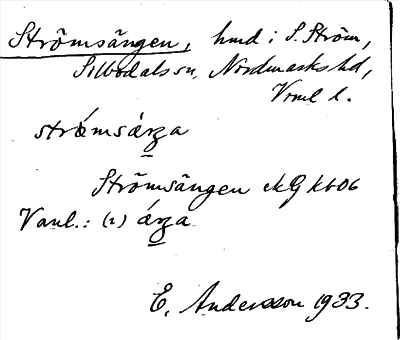 Strömsängen, hmd i S. Ström,
Silbodals sn, Nordmarks hd,
Vrml l.
strǿmsárza
Strömsängen ek G kb 06
Vanl.: (2) árza
E. Andersson 1933.